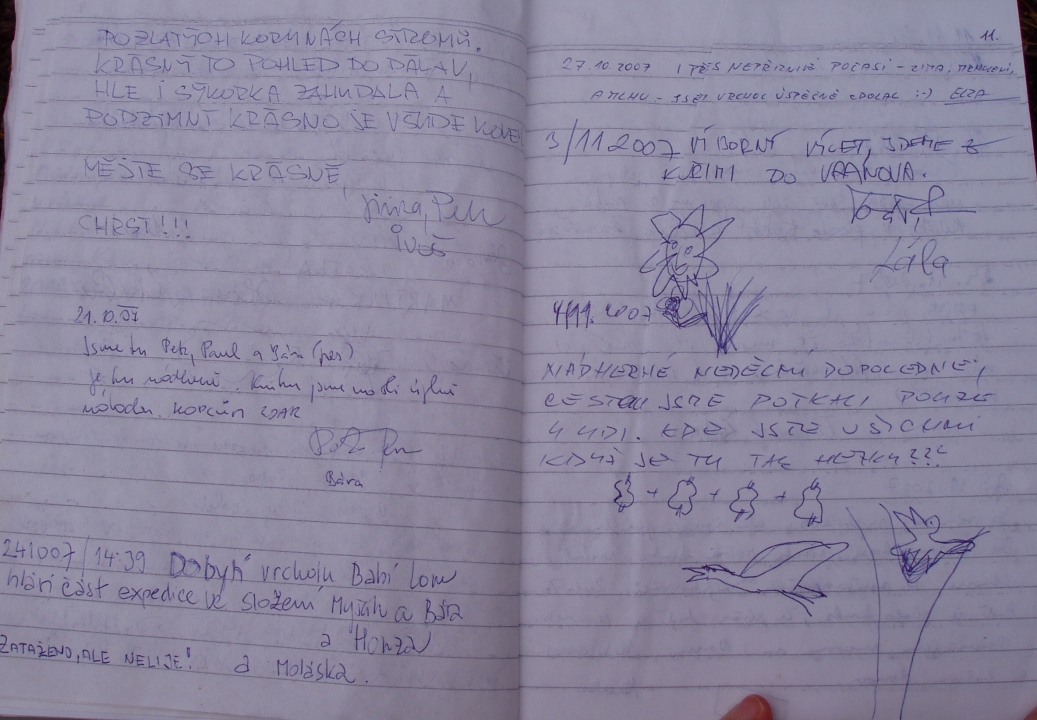 POZLATÝCH KORUNÁCH STROMŮ.
KRÁSNÝ TO POHLED DO DÁLAV,
HLE I SÝKORKA ZAHUDALA A
PODZIMNÍ KRÁSNO JE VŠUDE KOLEM
MĚJTE SE KRÁSNĚ,
CHRST!!!
21.10.07
Jsme tu Petr, Pavel a Bára (pes)
je tu nádherně. Knihu jsme našli úplně
náhodou. KOPCŮM ZDAR
Bára
241007/14:39 Dobytí vrcholu Babí lom
hlavní část expedice ve složení Myšák a Bára
a Honza
ZATAŽENO, ALE NELIJE! a Moláska.
11.
27.10.2007 I PŘES NEPŘÍZNIVÉ POČASÍ - ZIMA,
A MLHU - JSEM VRCHOL ÚSPĚŠNĚ ZDOLAL :-)
3/11 2007 VÍBORNÝ VÍLET, JDEME Z
KUŘIMI DO VRANOVA.
Lála
4/11. 2007
NÁDHERNÉ NEDĚLNÍ DOPOLEDNE,
CESTOU JSME POTKALI POUZE
4 LIDI. KDE JSTE VŠICHNI
KDYŽ JE TU TAK HEZKY???
+ + +